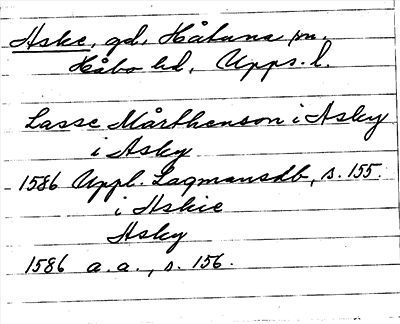 Aske, gd, Håtuna sn.
Håbo hd, Upps. l.
Lasse Mårthenson i Asky
i Asky
1586 Uppl. Lagmansdb, s. 155.
i Askie
Asky
1586 a.a., s. 156.